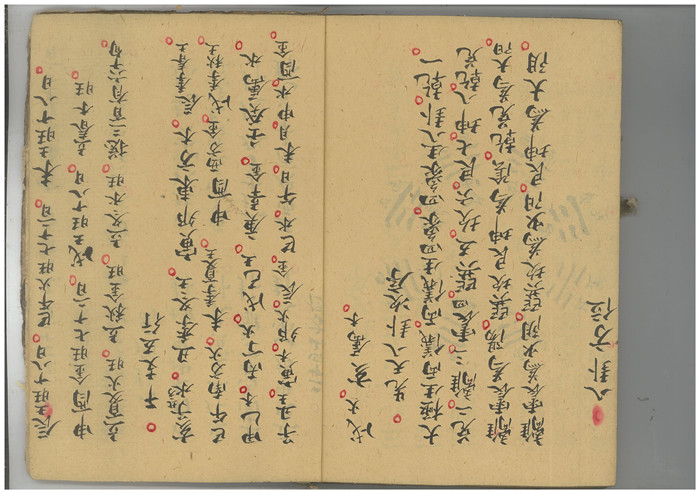 辰土旺十八日 巳午火旺七十二日 未土旺十八日
申酉金旺七十二日 戌土旺十八日 立春木旺
立夏火旺 立秋金旺 立冬水旺 揔三百有六十旬
干支五行
亥子北方水 丑季冬土 寅卯東方木 辰季春土
巳午南方火 未季夏土 申酉西方金 戌季秋土
甲乙木 丙丁火 戊己土 庚辛金 壬癸属水
子丑土 寅木 卯火 辰金 巳水 午日未月申水酉金
戌火 亥属木
先天八卦次序
大極生両儀両儀生四象四象生八卦乾一
兌二離三震四巽五坎六艮七坤八乾兌
離震為陽巽坎艮坤為陰乾兌為大阳
離震為少阴巽坎為少阳艮坤為大阴
八卦方位